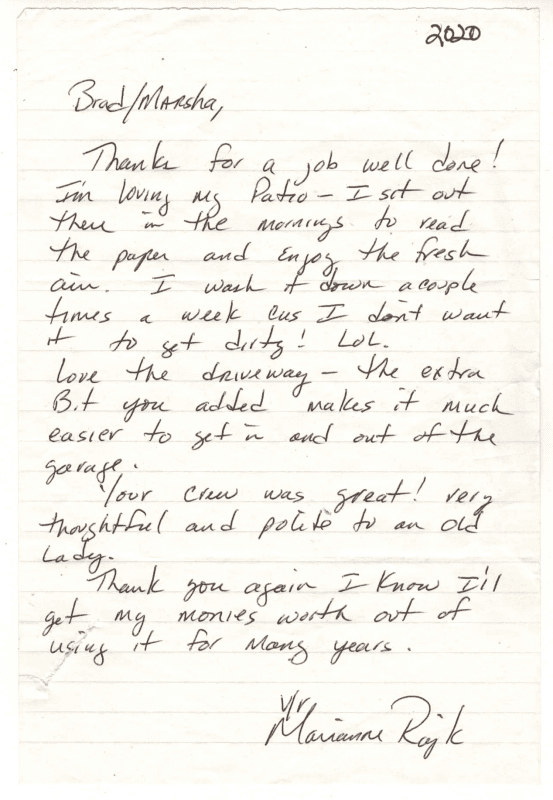 2020
Brad/Marsha,
Thanks for a job well done!
I'm loving my Patio - I sit out
there in the mornings to read
the paper and Enjoy the fresh
air. I wash it down a couple
times a week cus I don't want
it to get dirty! LOL.
Love the driveway - the extra
Bit you added makes it much
easier to get in and out of the
garage.
Your crew was great! very
thoughtful and polite to an old
Lady.
Thank you again I know I'll
get my monies worth out of
using it for many years.
V/r
Marianne